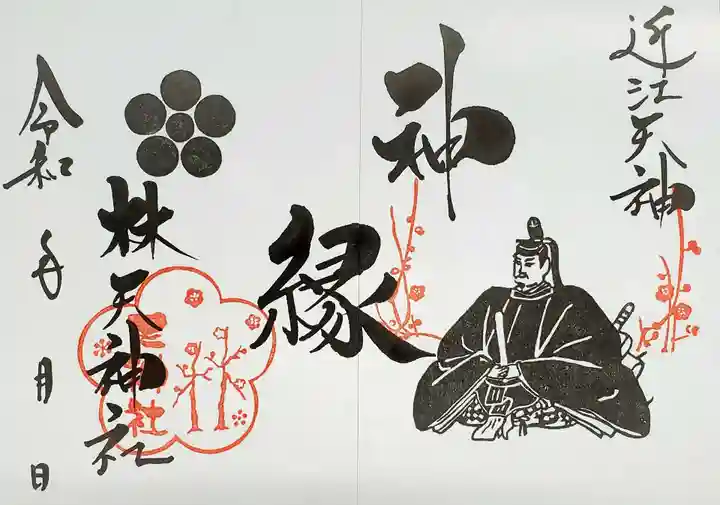 近江天神
神
縁
株天神社
令和 年 月 日